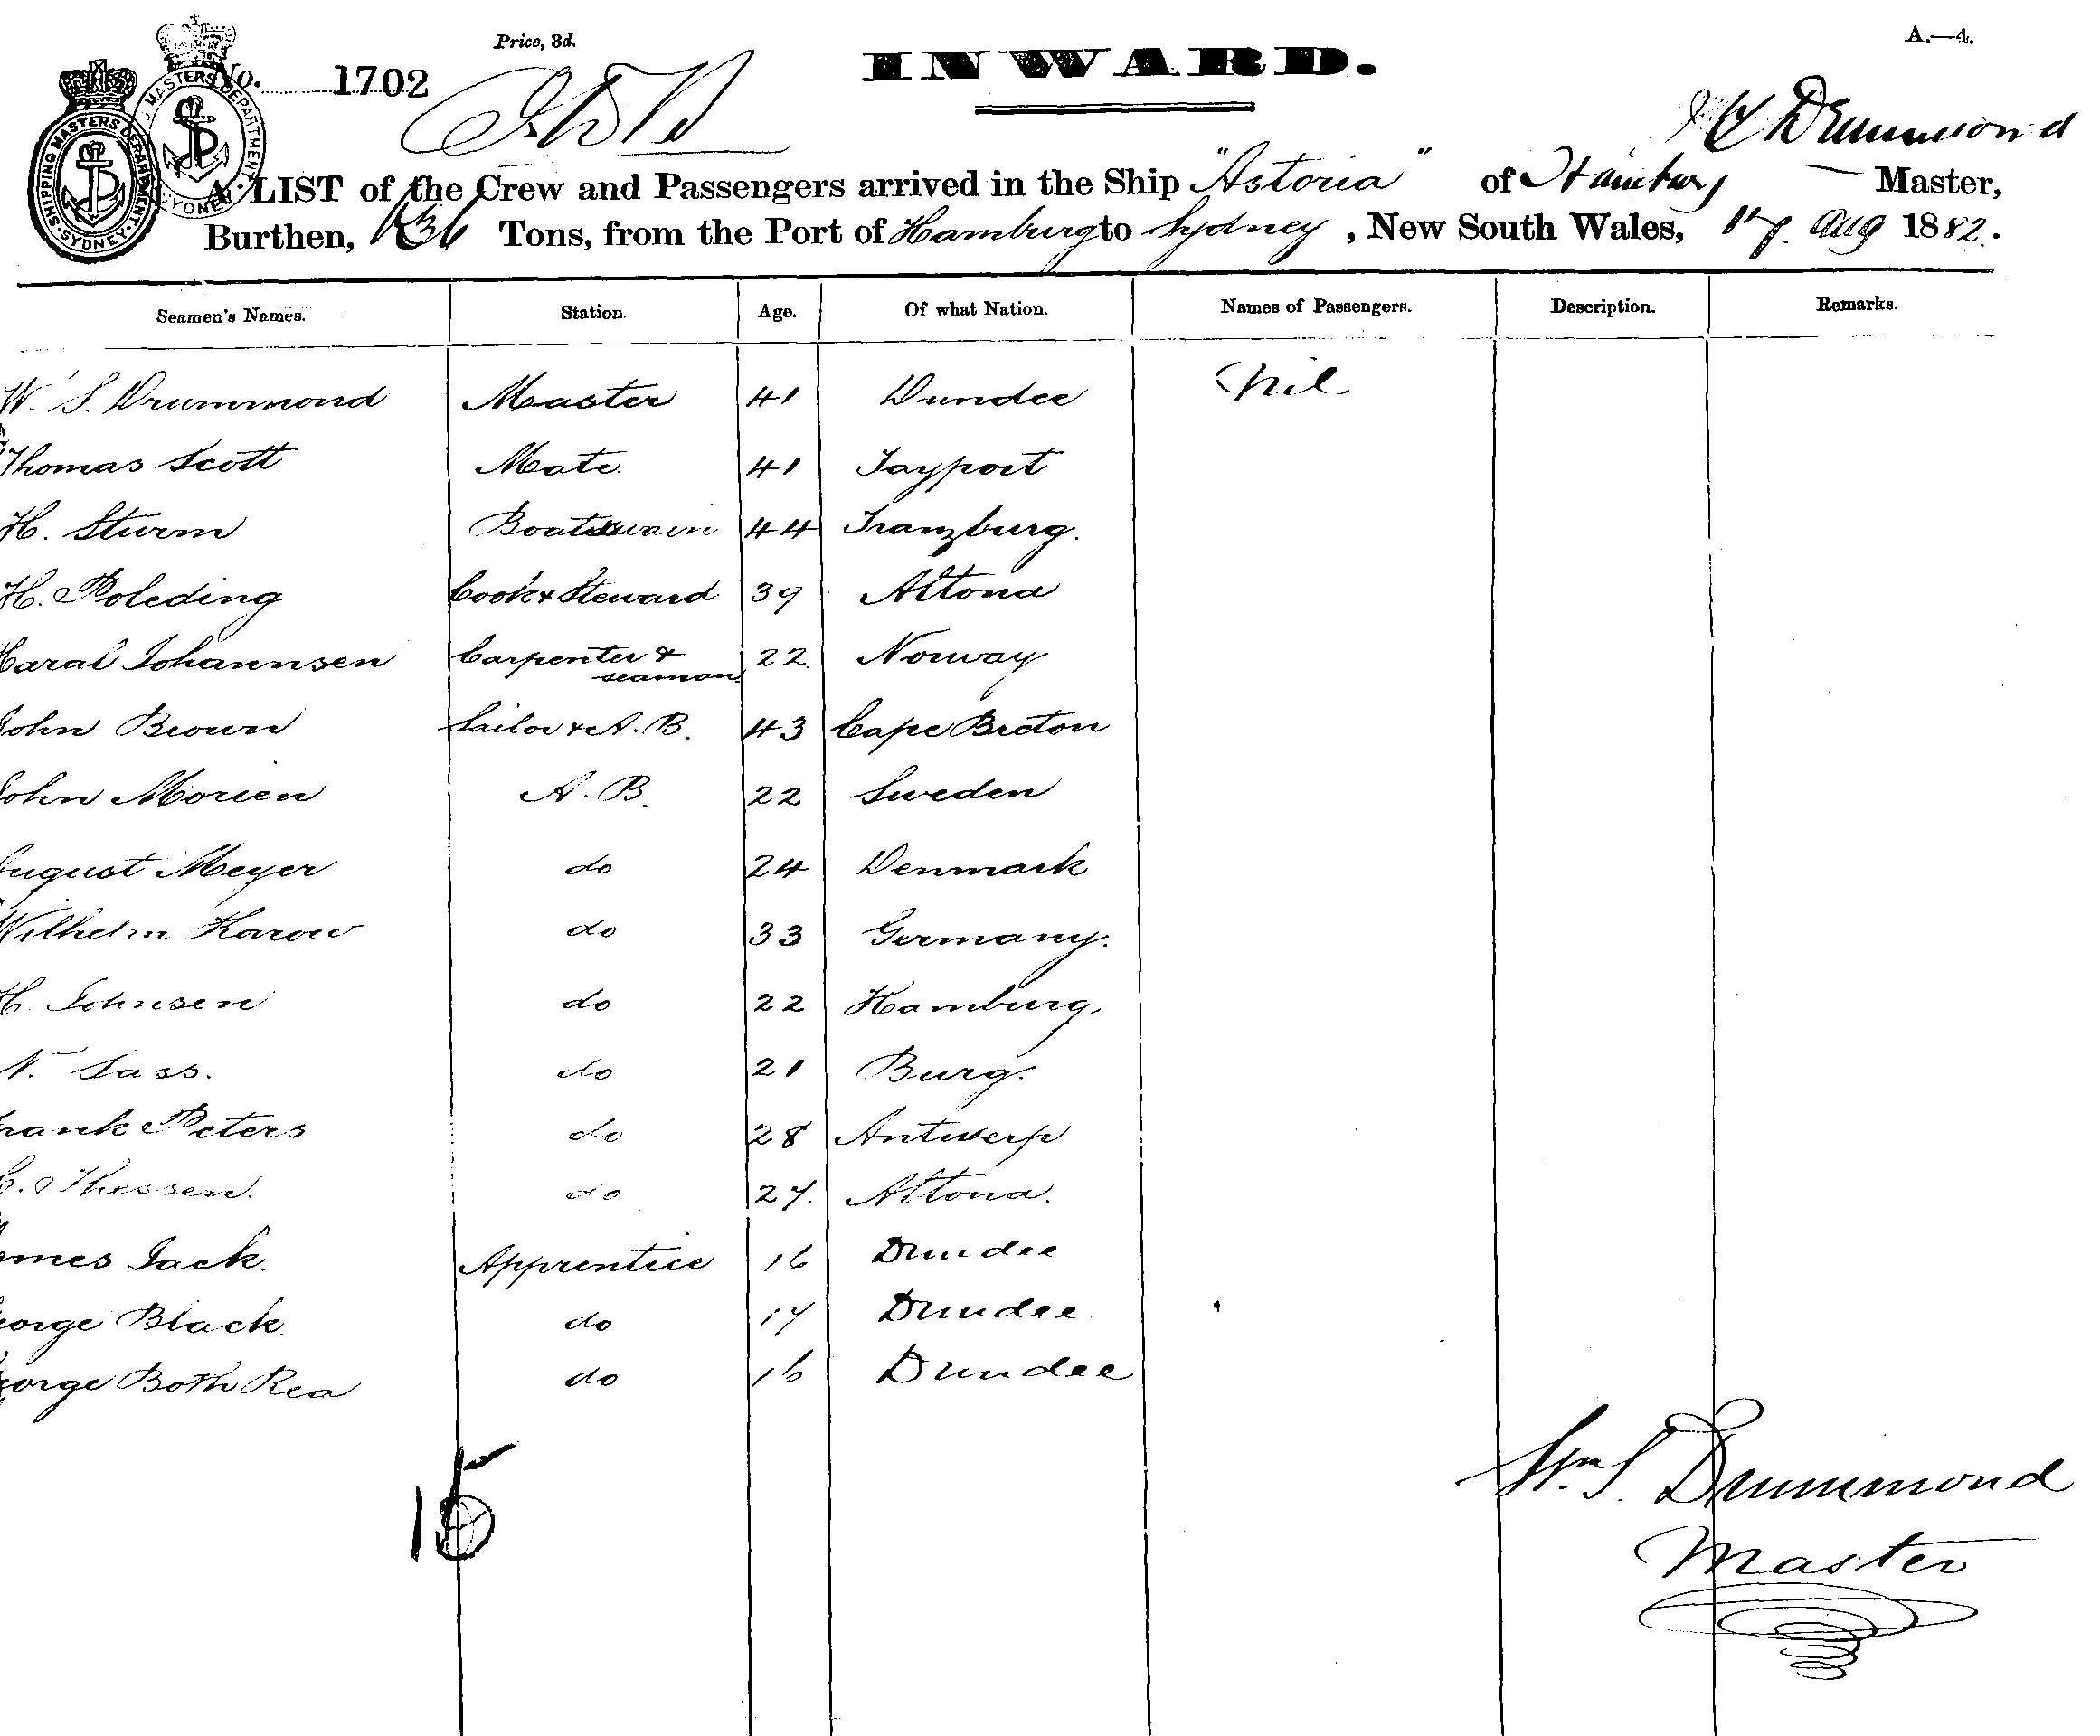 Price, 3d.
A.—4.
No. 1702
INWARD.
SHIPPING MASTERS DEPARTMENT
SYDNEY
MASTERS DEPARTMENT
SYDNEY
Drummond
A LIST of the Crew and Passengers arrived in the Ship "Astoria" of Master,
Burthen, Tons, from the Port of Hamburg to Sydney, New South Wales, Aug 1882.
Seamen's Names. Station. Age. Of what Nation. Names of Passengers. Description. Remarks.
W. S. Drummond Master 41 Dundee Nil
Thomas Scott Mate. 41 Tayport
H. Sturm Boatswain 44 Franzburg.
H. Poleding Cook & Steward 39 Altona
Johannsen Carpenter & seaman 22. Norway
John Brown Sailor & A.B. 43 Cape Breton
John Morien A.B. 22 Sweden
August Meyer do 24 Denmark
Wilhelm Karow do 33 Germany.
H. Johnsen do 22 Hamburg.
N. Sass. do 21 Burg.
Frank Peters do 28 Antwerp
Thessen. do 27. Altona.
James Jack. Apprentice 16 Dundee
George Black. do 17 Dundee
George Both Rea do 16 Dundee
15
Wm. S. Drummond
Master